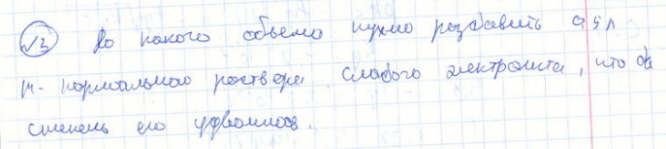 №3 До какого объема нужно разбавить 0,5 л
м- нормального раствора слабого электролита, что бы
степень его удвоилась.